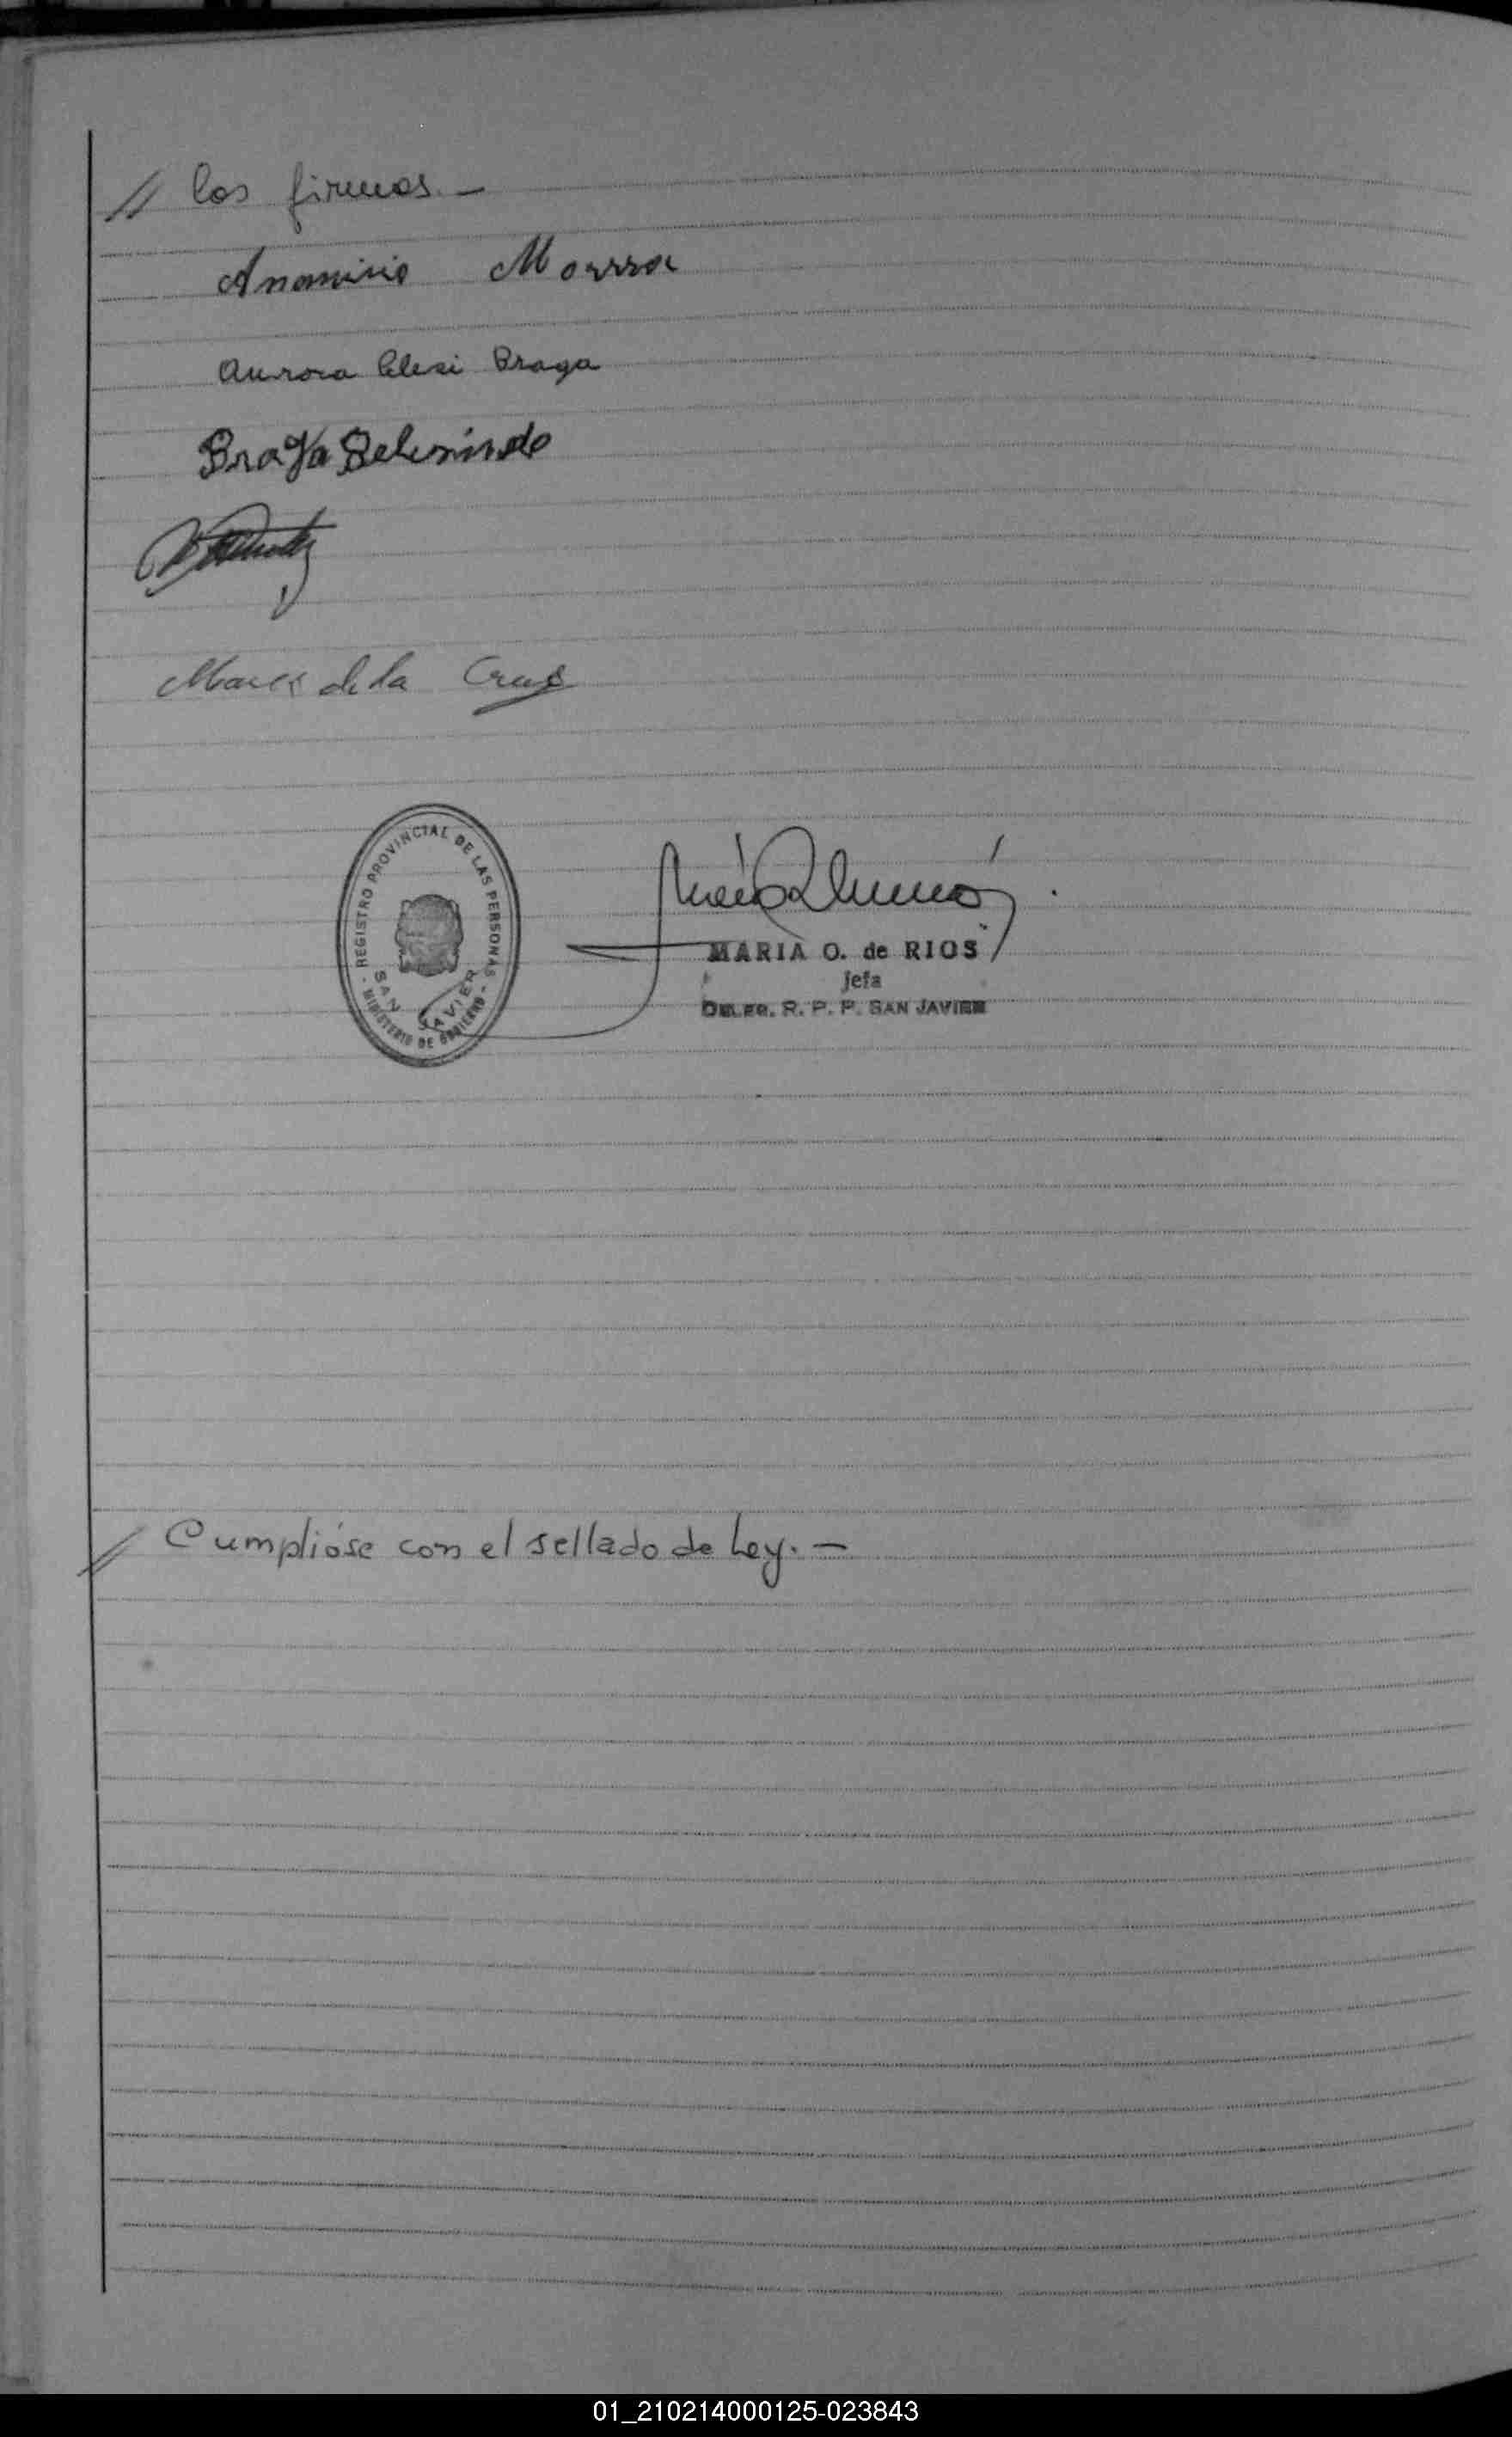 // las firmas.—
Anomirio Morrra
Aurora Clesi Braga
Braga Belermindo
de la Cruz
- REGISTRO PROVINCIAL DE LAS PERSONAS -
MINISTERIO DE GOBIERNO
SAN JAVIER
MARIA O. de RIOS
Jefa
DELEG. R. P. P. SAN JAVIER
// Cumplióse con el sellado de Ley.—
01_210214000125-023843